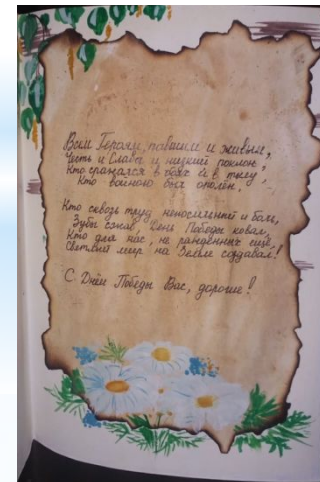 Всем Героям, павшим и живым,
Честь и Слава и низкий поклон,
Кто сражался в боях и в тылу,
Кто войною был опалён.
Кто сквозь труд непосильный и боль,
Зубы сжав, День Победы ковал,
Кто для нас, не рождённых ещё,
Светлый мир на Земле создавал!
С Днём Победы Вас, дорогие!